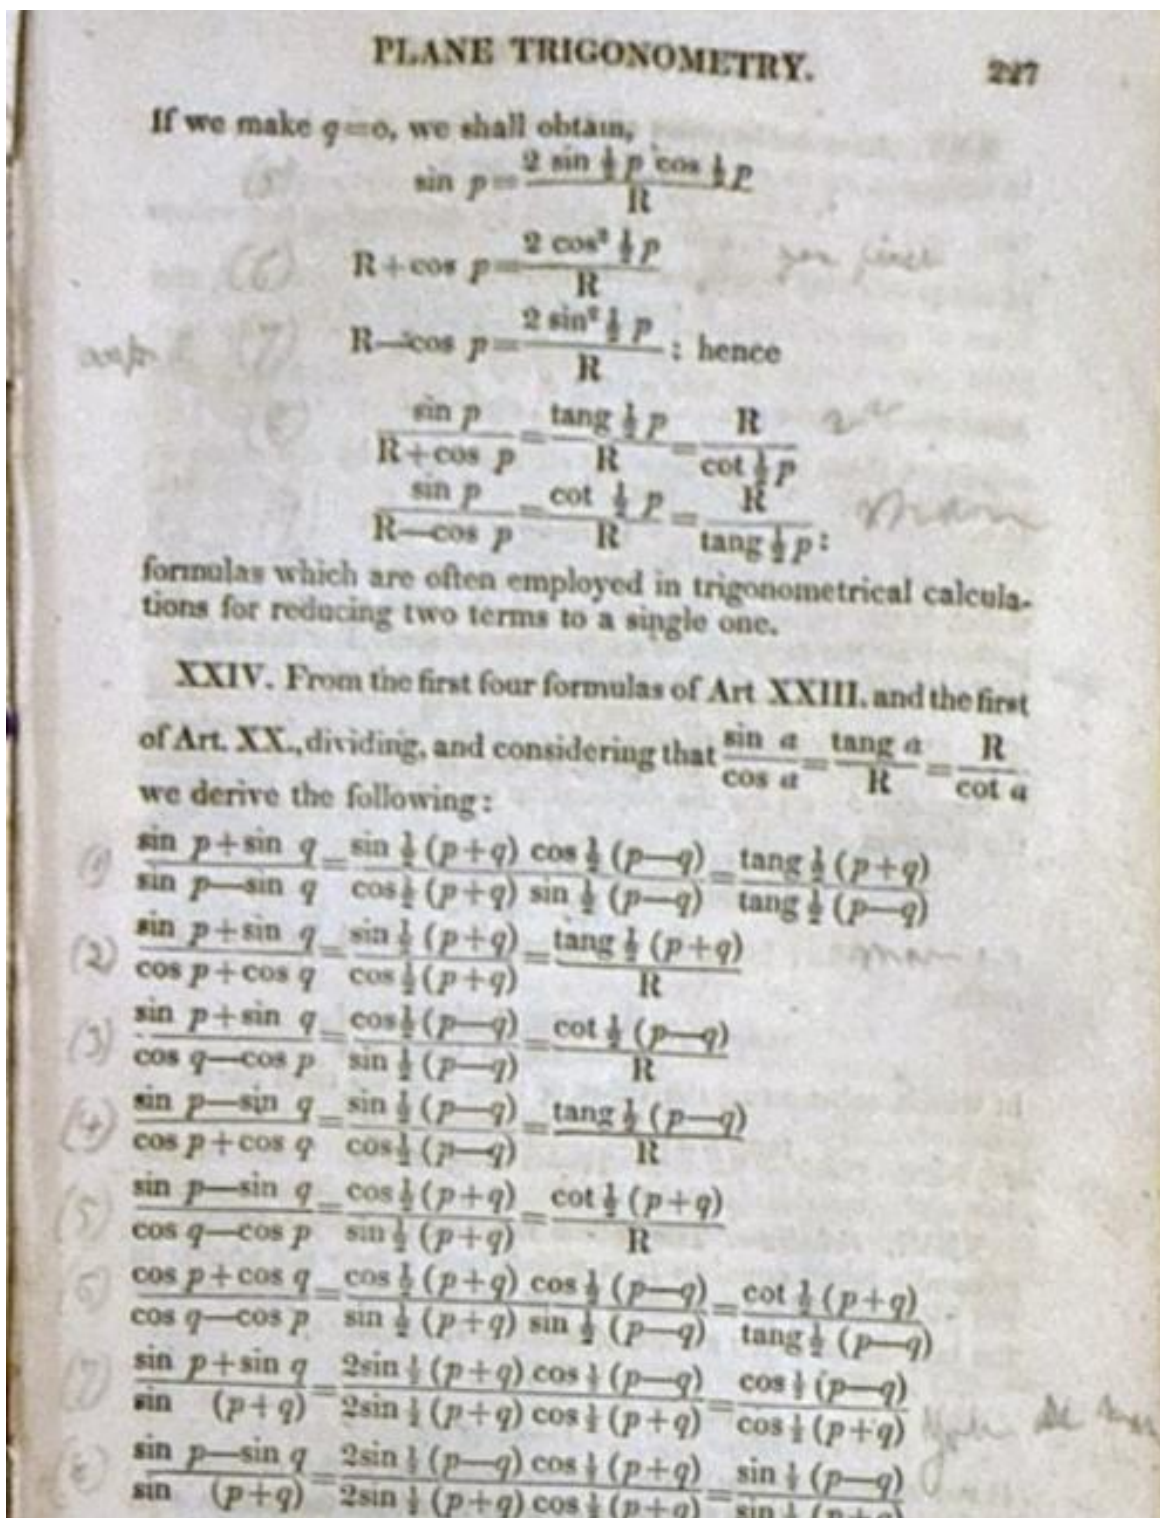 PLANE TRIGONOMETRY. 227
If we make q=o, we shall obtain,
(5) sin p = 2 sin ½ p cos ½ p / R
(6) R+cos p = 2 cos² ½ p / R
(7) R—cos p = 2 sin² ½ p / R : hence
sin p / R+cos p = tang ½ p / R = R / cot ½ p
sin p / R—cos p = cot ½ p / R = R / tang ½ p :
formulas which are often employed in trigonometrical calcula-
tions for reducing two terms to a single one.
XXIV. From the first four formulas of Art XXIII. and the first
of Art. XX., dividing, and considering that sin a / cos a = tang a / R = R / cot a
we derive the following:
(1) sin p+sin q / sin p—sin q = sin ½ (p+q) cos ½ (p—q) / cos ½ (p+q) sin ½ (p—q) = tang ½ (p+q) / tang ½ (p—q)
(2) sin p+sin q / cos p+cos q = sin ½ (p+q) / cos ½ (p+q) = tang ½ (p+q) / R
(3) sin p+sin q / cos q—cos p = cos ½ (p—q) / sin ½ (p—q) = cot ½ (p—q) / R
(4) sin p—sin q / cos p+cos q = sin ½ (p—q) / cos ½ (p—q) = tang ½ (p—q) / R
(5) sin p—sin q / cos q—cos p = cos ½ (p+q) / sin ½ (p+q) = cot ½ (p+q) / R
(6) cos p+cos q / cos q—cos p = cos ½ (p+q) cos ½ (p—q) / sin ½ (p+q) sin ½ (p—q) = cot ½ (p+q) / tang ½ (p—q)
(7) sin p+sin q / sin (p+q) = 2sin ½ (p+q) cos ½ (p—q) / 2sin ½ (p+q) cos ½ (p+q) = cos ½ (p—q) / cos ½ (p+q)
sin p—sin q / sin (p+q) = 2sin ½ (p—q) cos ½ (p+q) / 2sin ½ (p+q) cos ½ (p+q) = sin ½ (p—q) / sin ½ (p+q)